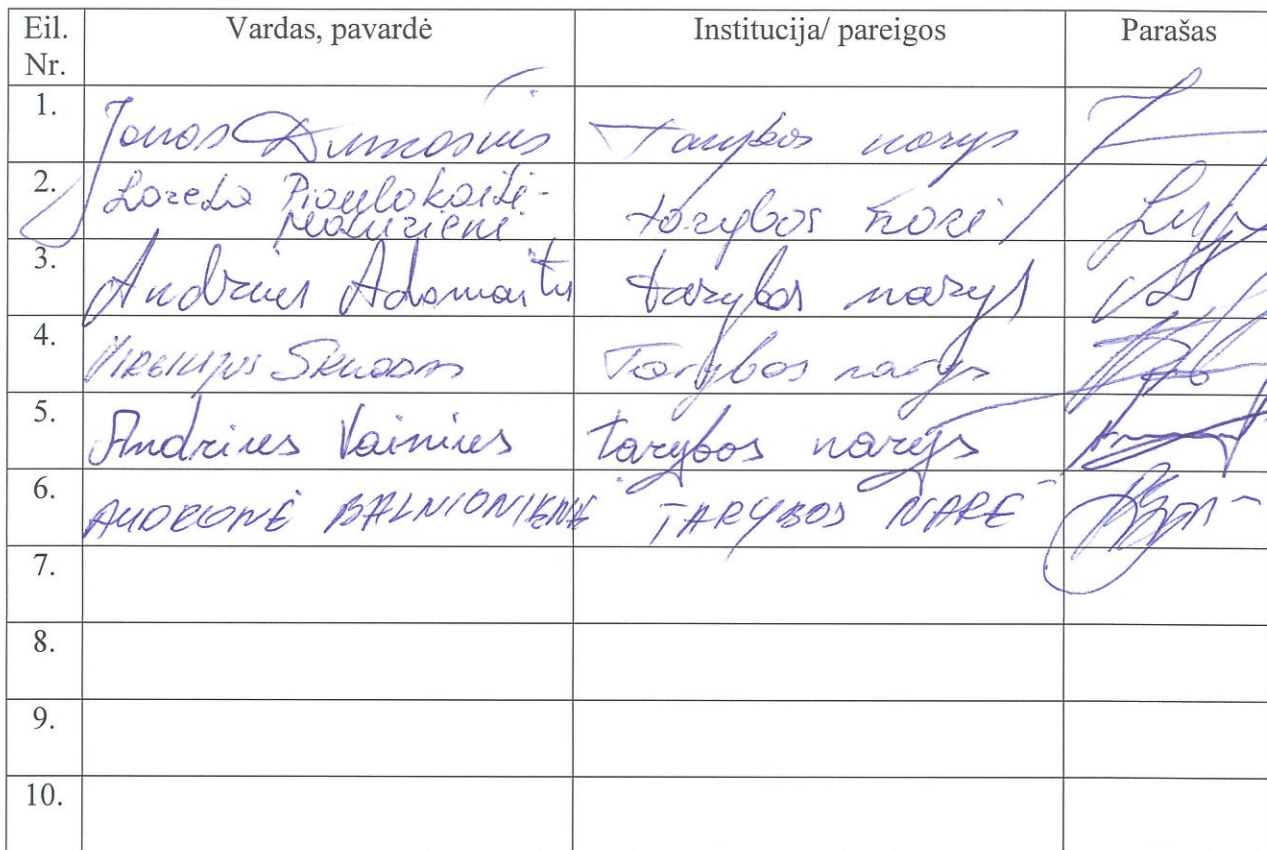 Eil. Nr. Vardas, pavardė Institucija/ pareigos Parašas
1. Jonas Dumašius Tarybos narys
2. Loreta Piaulokaitė-
Motuzienė tarybos narė
3. Andrius Adomaitis tarybos narys
4. Virginijus Skuodas Tarybos narys
5. Andrius Vainius tarybos narys
6. AUDRONĖ BALNIONIENĖ TARYBOS NARĖ
7.
8.
9.
10.